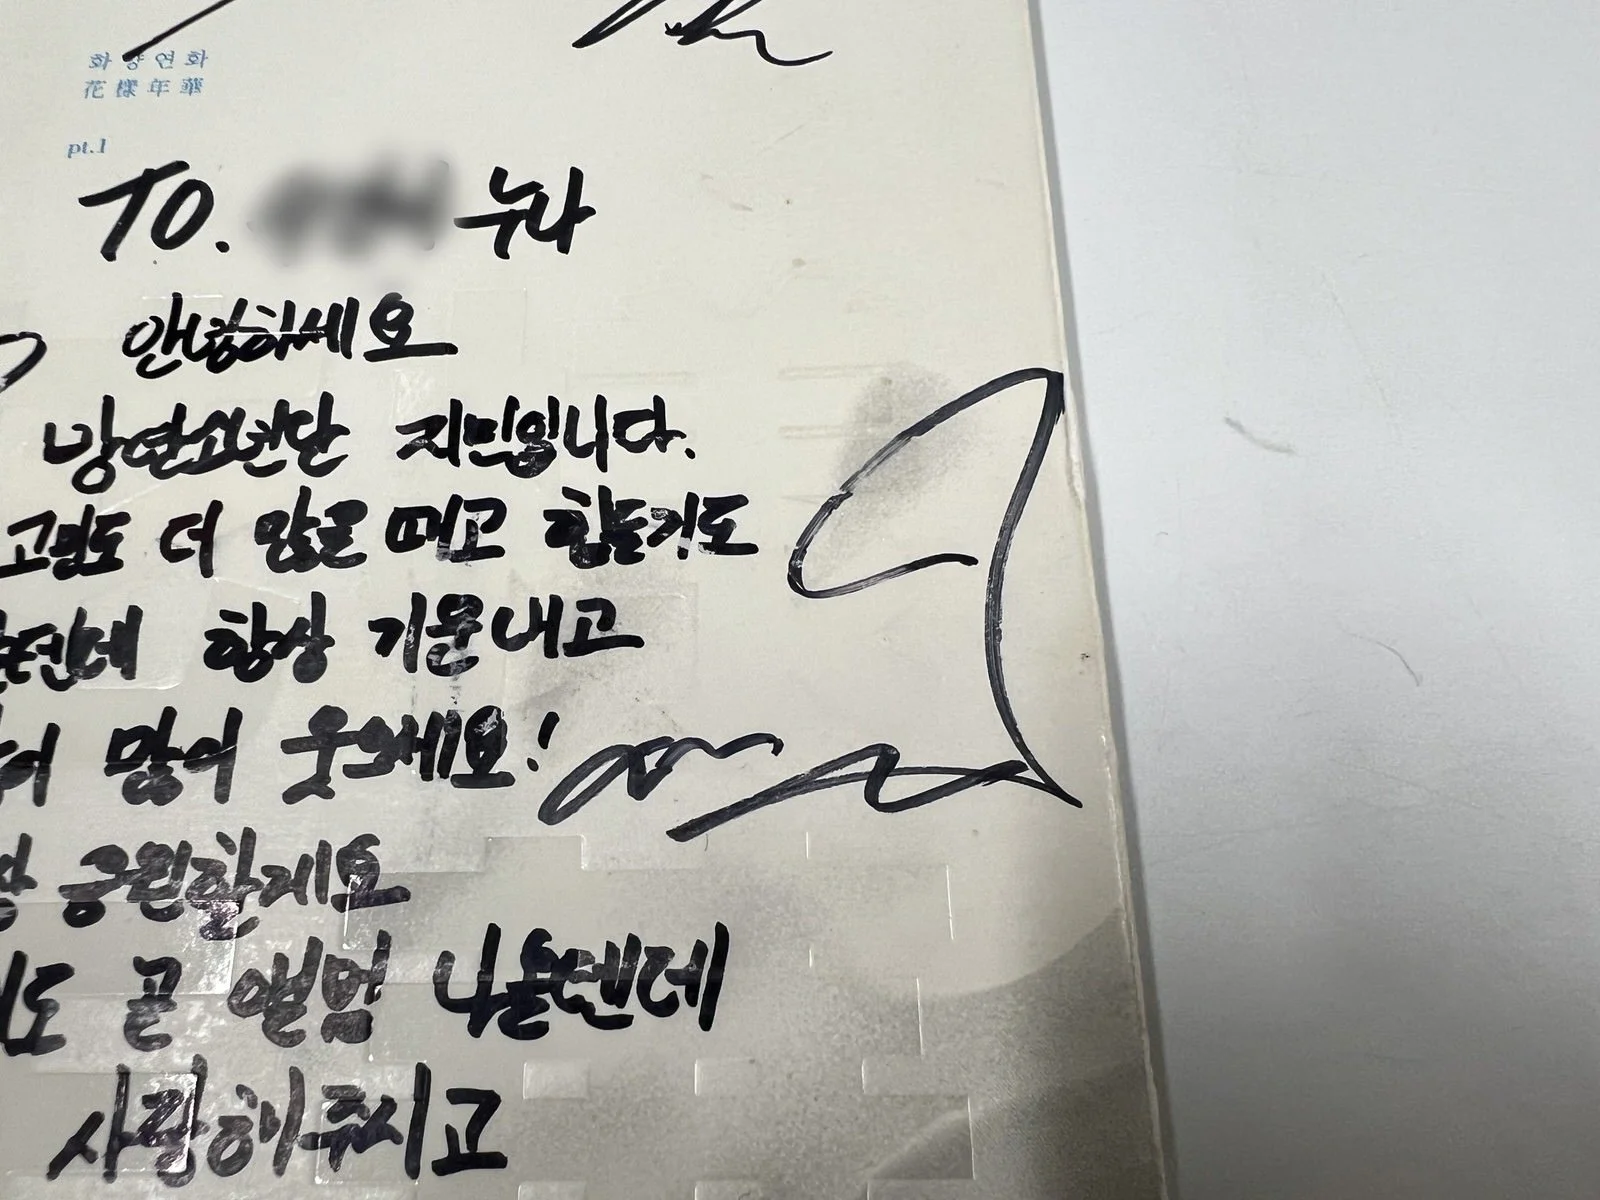 화양연화
花樣年華
pt.1
TO. 누나
안녕하세요
방탄소년단 지민입니다.
고민도 더 많을 때고 힘들기도
텐데 항상 기운내고
더 많이 웃으세요!
응원할게요
도 곧 앨범 나올텐데
사랑해주시고